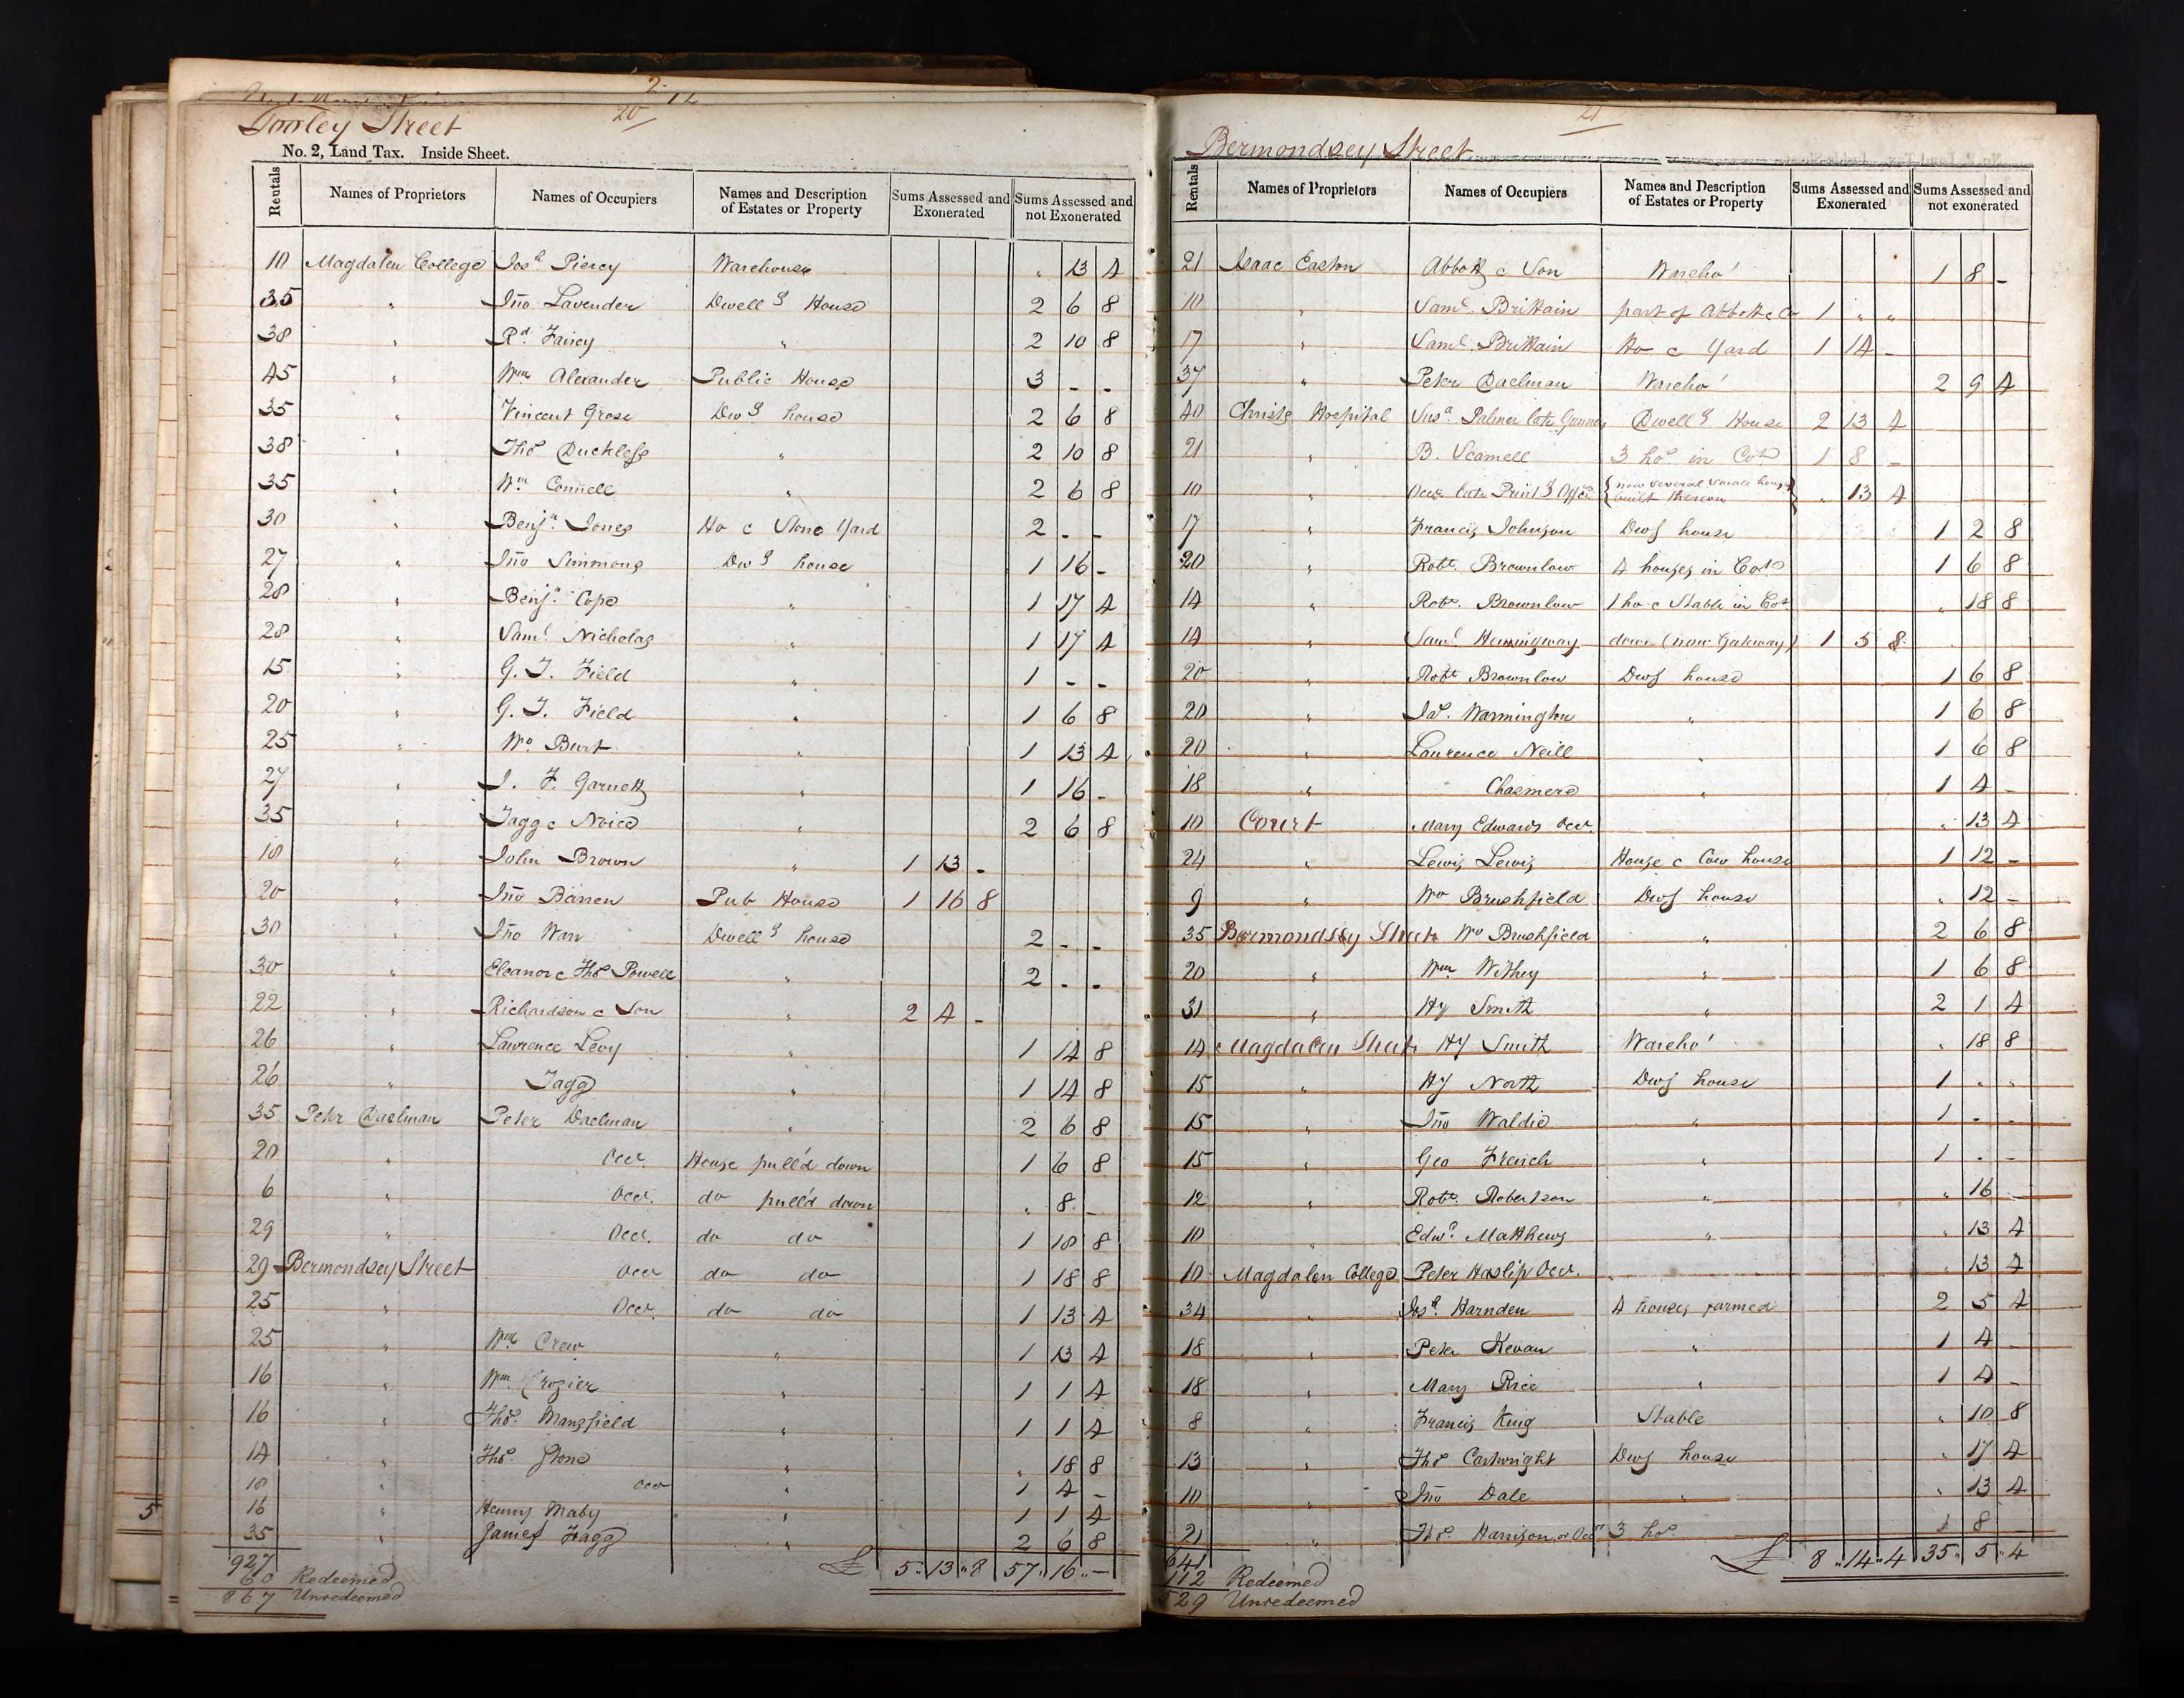 20
Tooley Street
No. 2, Land Tax. Inside Sheet.
Rentals Names of Proprietors Names of Occupiers Names and Description of Estates or Property Sums Assessed and Exonerated Sums Assessed and not Exonerated
10 Magdalen College Josh Piercy Warehouse " 13 4
35 " Jno Lavender Dwellg House 2 6 8
38 " Rd. Fairey " 2 10 8
45 " Wm Alexander Public House 3 - -
35 " Vincent Grose Dwg house 2 6 8
38 " Thos Duckless " 2 10 8
35 " Wm Connell " 2 6 8
30 " Benjn. Jones Ho & Stone Yard 2 - -
27 " Jno Simmons Dwg house 1 16 -
28 " Benjn. Cope " 1 17 4
28 " Saml Nicholas " 1 17 4
15 " G. T. Field " 1 - -
20 " G. T. Field " 1 6 8
25 " Wm Burt " 1 13 4
27 " J. F. Garnett " 1 16 -
35 " Tagg & Noice " 2 6 8
18 " John Brown " 1 13 -
20 " Jno Barren Pub House 1 16 8
30 " Jno Warr Dwellg house 2 - -
30 " Eleanor & Thos Powell " 2 - -
22 " Richardson & Son " 2 4 -
26 " Lawrence Levy " 1 14 8
26 " Tagg " 1 14 8
35 Peter Daelman Peter Daelman " 2 6 8
20 " Occr. House pull'd down 1 6 8
6 " Occr. do pull'd down " 8 -
29 " Occr. do do 1 18 8
29 Bermondsey Street Occr do do 1 18 8
25 " Occr. do do 1 13 4
25 " Wm Crew " 1 13 4
16 " Wm. Crozier " 1 1 4
16 " Thos. Mansfield " 1 1 4
14 " Thos. Stone " " 18 8
18 " Occr " 1 4 -
16 " Henry Maby " 1 1 4
35 " James Fagg " 2 6 8
927 £ 5 " 13 " 8 57 " 16 " -
60 Redeemed
867 Unredeemed
5
21
Bermondsey Street
Rentals Names of Proprietors Names of Occupiers Names and Description of Estates or Property Sums Assessed and Exonerated Sums Assessed and not exonerated
21 Isaac Easton Abbott & Son Wareho' 1 8 -
10 " Saml. Brittain part of Abbott & Co 1 " "
17 " Saml. Brittain Ho & Yard 1 14 -
37 " Peter Daelman Wareho' 2 9 4
40 Christs Hospital Susa. Palmer late Dwellg House 2 13 4
21 " B. Scamell 3 hos in Cot 1 8 -
10 " Occr late Printg Office {now several small houses built thereon} " 13 4
17 " Francis Johnson Dwg house 1 2 8
20 " Robt. Brownlow 4 houses in Cot 1 6 8
14 " Robt. Brownlow 1 ho & Stable in Cot " 18 8
14 " Saml Hemingway down (now Gateway) 1 3 8
20 " Robt Brownlow Dwg house 1 6 8
20 " Jas. Warmington " 1 6 8
20 " Laurence Neill " 1 6 8
18 " Chasmere " 1 4 -
10 Court Mary Edwards Occr. " 13 4
24 " Lewis Lewis House & Cow house 1 12 -
9 " Wm Brushfield Dwg house " 12 -
35 Bermondsey Street Wm Brushfield " 2 6 8
20 " Wm Withey " 1 6 8
31 " Hy Smith " 2 1 4
14 Magdalen Street Hy Smith Wareho' " 18 8
15 " Hy North Dwg house 1 " "
15 " Jno Waldie " 1 - -
15 " Geo French " 1 - -
12 " Robt. Robertson " " 16 -
10 " Edwd. Matthews " " 13 4
10 Magdalen College Peter Haslip Occr. " 13 4
34 " Josh. Harnden 4 houses farmed 2 5 4
18 " Peter Kevan " 1 4 -
18 " Mary Rice " 1 4 -
8 " Francis King Stable " 10 8
13 " Thos Cartwright Dwg house " 17 4
10 " Jno Dale " " 13 4
21 " Thos. Harrison or Occr 3 hos 1 8
641 £ 8 " 14 " 4 35 " 5 " 4
112 Redeemed
529 Unredeemed